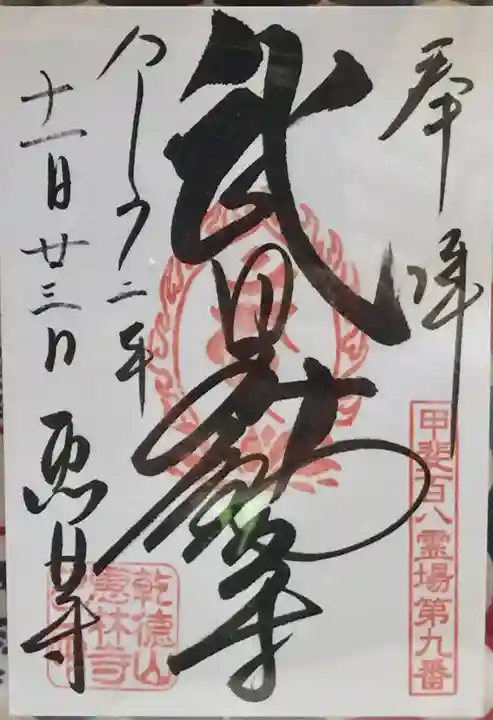 奉拝
甲斐百八霊場第九番
武田不動尊
二年
十一月廿三日 恵林寺
乾徳山
惠林寺